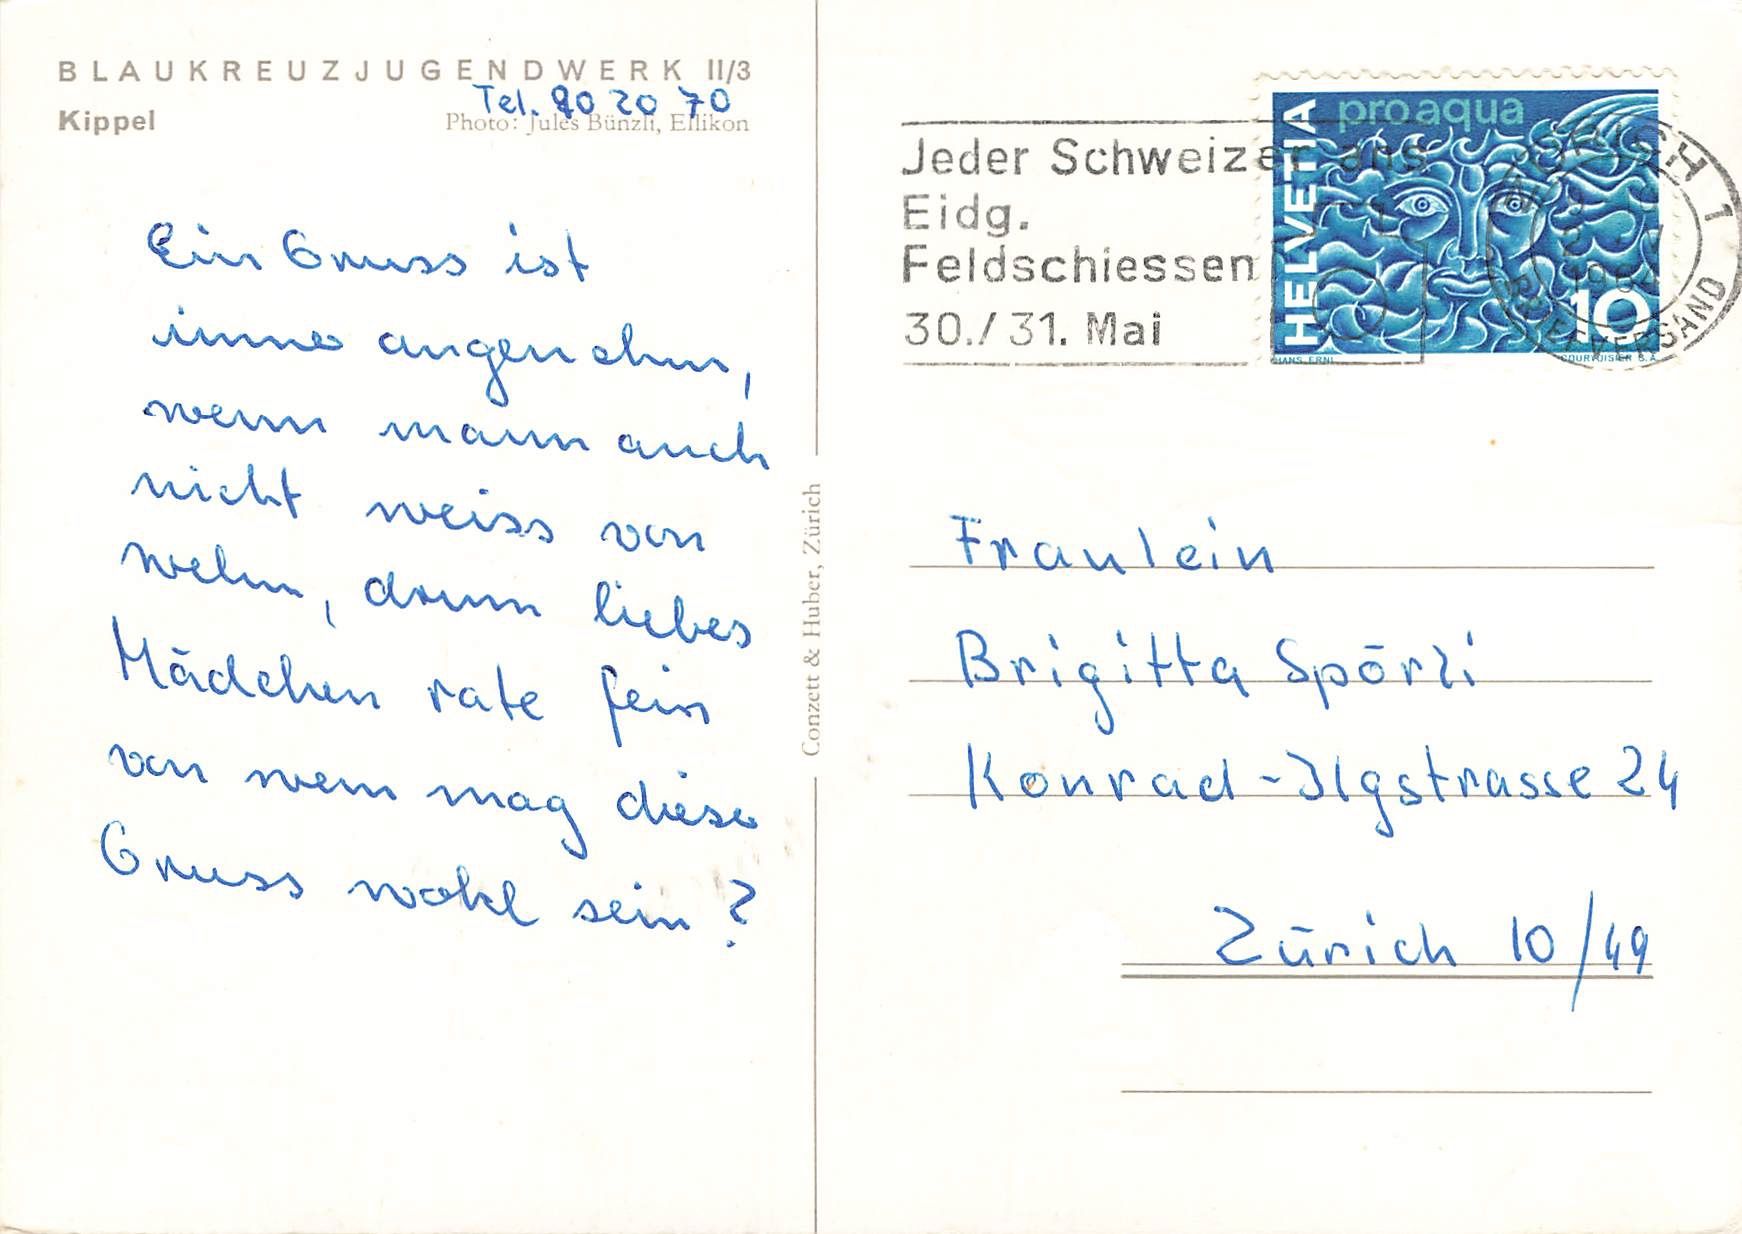 BLAUKREUZJUGENDWERK II/3
Tel. 90 20 70
Kippel
Photo: Jules Bünzli, Ellikon
Ein Gruss ist
immer angenehm,
wenn mann auch
nicht weiss von
wehm, drum liebes
Mädchen rate fein
von wem mag dieser
Gruss wohl sein?
Conzett & Huber, Zürich
Jeder Schweizer ans
Eidg.
Feldschiessen
30./31. Mai
pro aqua
HELVETIA
10
HANS ERNI
COURVOISIER S.A.
ZÜRICH 1
1964
BRIEFVERSAND
Fraulein
Brigitta Spörli
Konrad-Ilgstrasse 24
Zürich 10/49